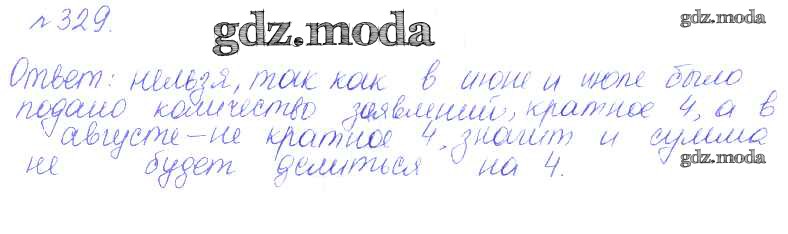 №329.
gdz.moda
gdz.moda
Ответ: нельзя, так как в июне и июле было
подано количество заявлений, кратное 4, а в
августе – не кратное 4, значит и сумма
не будет делиться на 4.
gdz.moda